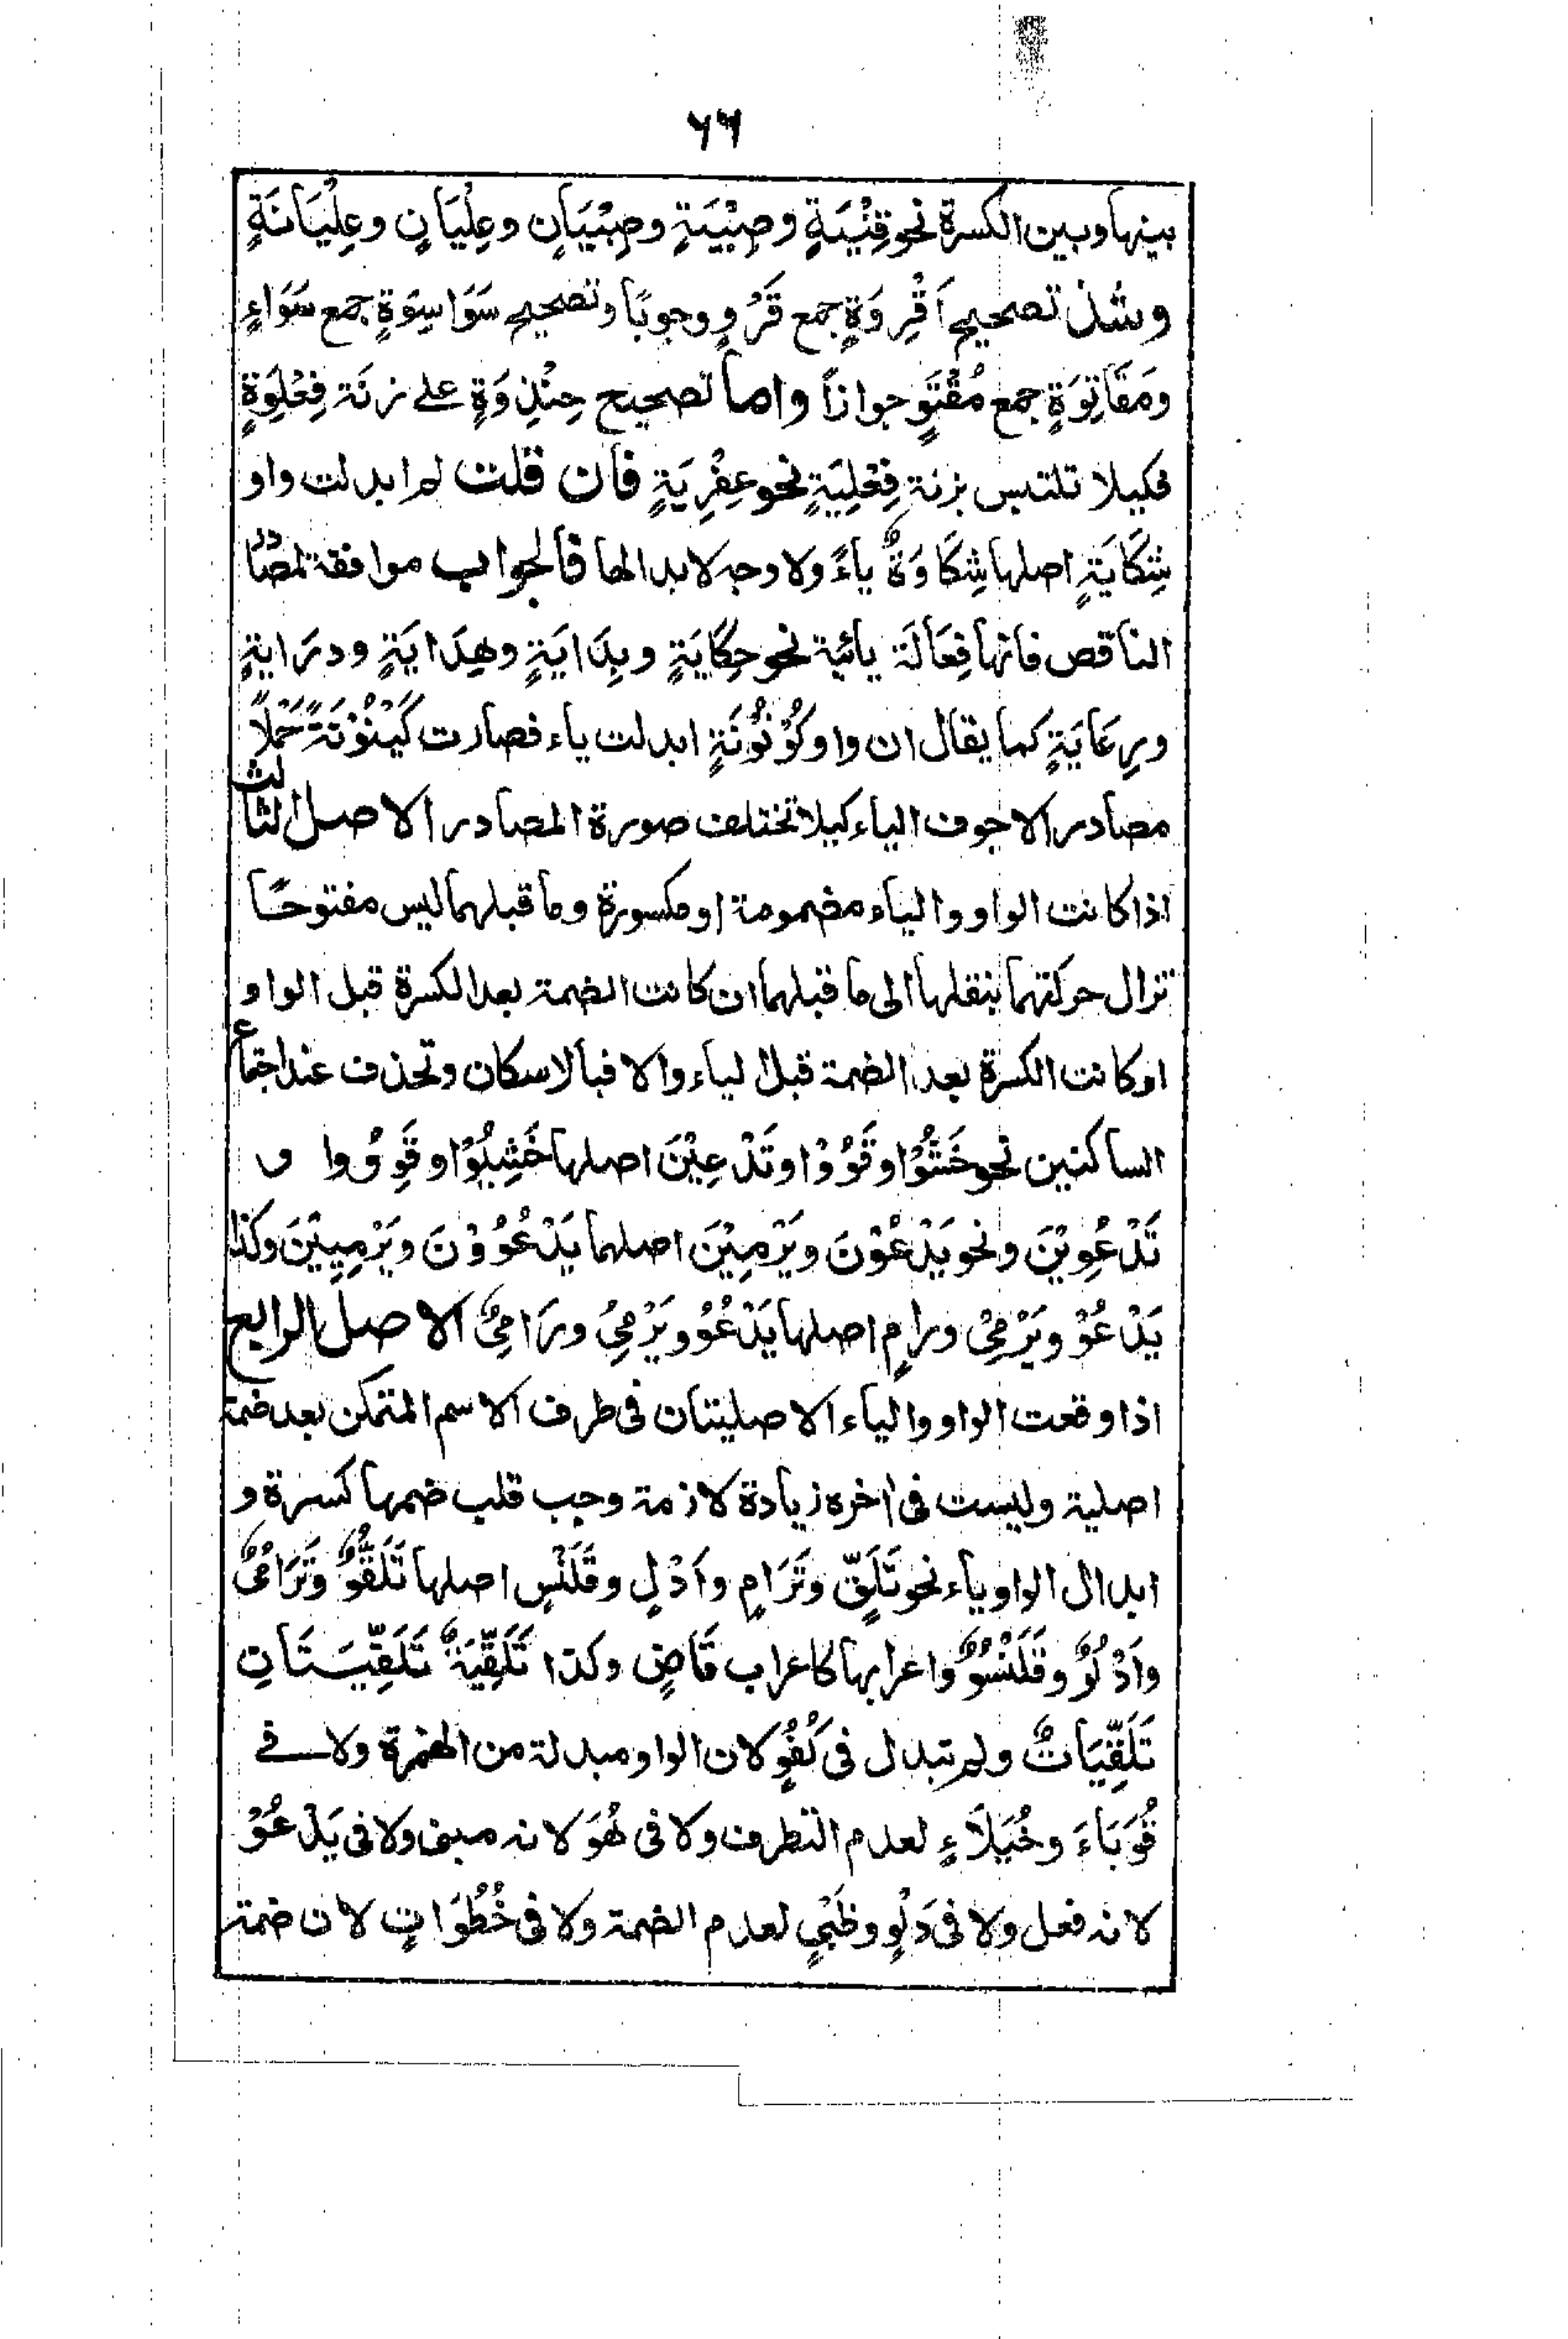 ٦٦
بينها وبين الكسرة نحو قِنْيَةٍ وصِبْيَةٍ وصِبْيَانٍ وعِلْيَانٍ وعِلْيَانَةٍ
وشذ تصحيح اَقْرِوَةٍ جمع قَرْوٍ وجوبًا وتصحيح سَوَاسِوَةٍ جمع سَوَاءٍ
ومَقَاتِوَةٍ جمع مُقْتَوٍ جوازاً واما تصحيح حِنْذِوَةٍ على زنَة فِعْلِوَةٍ
فكيلا تلتبس بزنة فِعْلِيَةٍ نحو عِفْرِيَةٍ فان قلت لم ابدلت واو
شِكَايَةٍ اصلها شِكَاوَةٌ ياءً ولا وجه لابدالها فالجواب موافقة لمصادر
الناقص فانها فِعَالَة يائية نحو حِكَايَةٍ وبِدَايَةٍ وهِدَايَةٍ ودرَايةٍ
ورِعَايَةٍ كما يقال ان واو كُوْنُوْنَةٍ ابدلت ياء فصارت كَيْنُوْنَةً حَمْلاً
مصادر الاجوف الياء كيلا تختلف صورة المصادر الاصل الثالث
اذا كانت الواو والياء مضمومة او مكسورة وما قبلهما ليس مفتوحًا
تزال حركتهما بنقلها الى ما قبلهما ان كانت الضمة بعد الكسرة قبل الواو
او كانت الكسرة بعد الضمة قبل الياء والا فبالاسكان وتحذف عند اجتماع
الساكنين نحو خَشُوْا وقَوُوْا وتَدْعِيْنَ اصلها خَشِيُوْا وقَوِوُوا و
تَدْعُوِيْنَ ونحو يَدْعُوْنَ ويَرْمِيْنَ اصلهما يَدْعُوُوْنَ ويَرْمِيِيْنَ وكذا
يَدْعُوْ ويَرْمِيْ ورامٍ اصلها يَدْعُوُ ويَرْمِيُ ورَامِيٌ الاصل الرابع
اذا وقعت الواو والياء الاصليتان فى طرف الاسم المتمكن بعد ضمة
اصلية وليست فى اخره زيادة لازمة وجب قلب ضمها كسرة و
ابدال الواو ياء نحو تَلَقٍّ وتَرَامٍ واَدْلٍ وقَلَنْسٍ اصلها تَلَقُّوٌ وتَرَامُيٌ
واَدْلُوٌ وقَلَنْسُوٌ واعرابها كاعراب قَاضٍ وكذا تَلَقِّيَةٌ تَلَقِّيَتَانِ
تَلَقِّيَاتٌ ولم تبدل فى كُفُوٍ لان الواو مبدلة من الهمزة ولا فے
قُوَبَاءَ وخُيَلَاءٍ لعدم التطرف ولا فى هُوَ لانه مبنى ولا فى يَدْعُوْ
لانه فعل ولا فى دَلْوٍ وظَبْيٍ لعدم الضمة ولا فى خُطُوَاتٍ لان ضمة